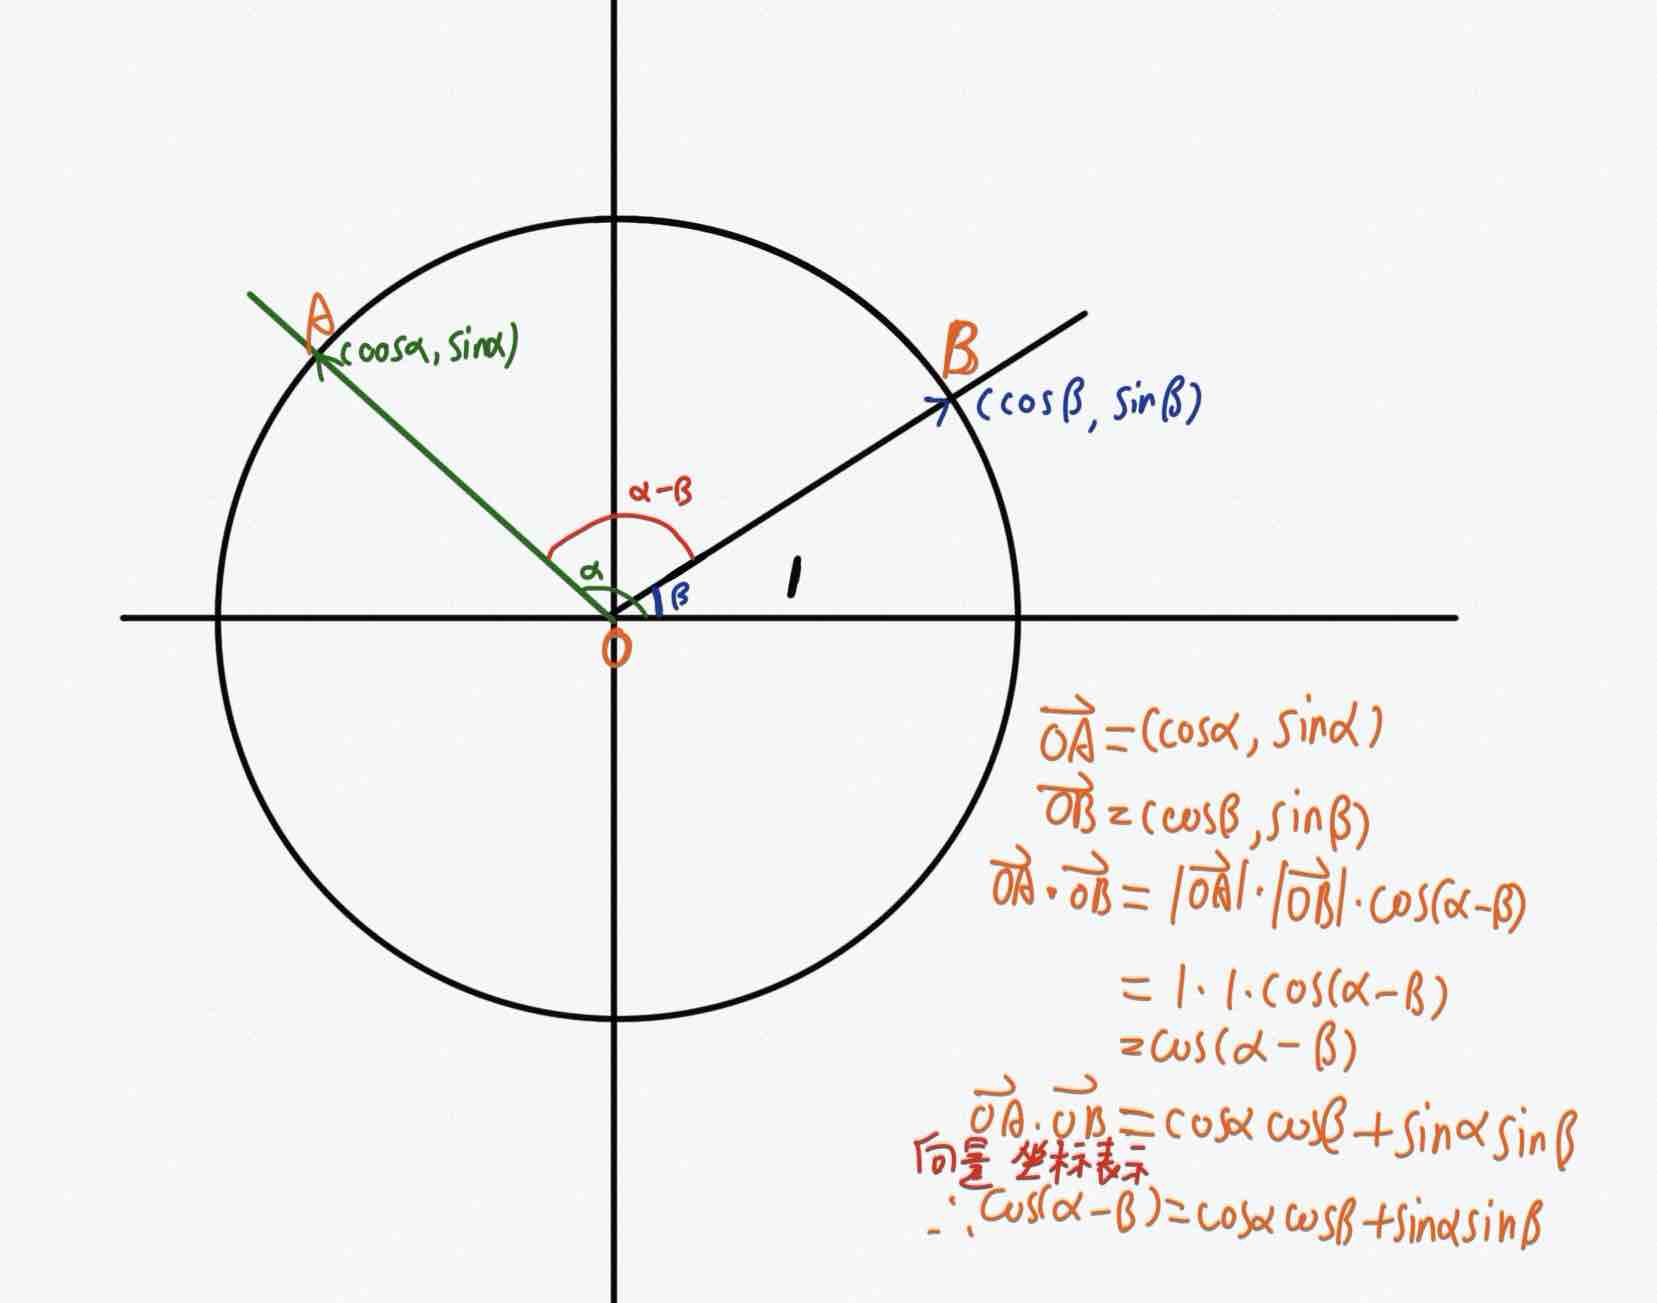 A
(cosα, sinα)
B
(cosβ, sinβ)
α-β
α
β
1
O
\overrightarrow{OA}=(cosα, sinα)
\overrightarrow{OB}=(cosβ, sinβ)
\overrightarrow{OA}·\overrightarrow{OB}=|\overrightarrow{OA}|·|\overrightarrow{OB}|·cos(α-β)
=1·1·cos(α-β)
=cos(α-β)
\overrightarrow{OA}·\overrightarrow{OB}=cosαcosβ+sinαsinβ
向量坐标表示
∴cos(α-β)=cosαcosβ+sinαsinβ